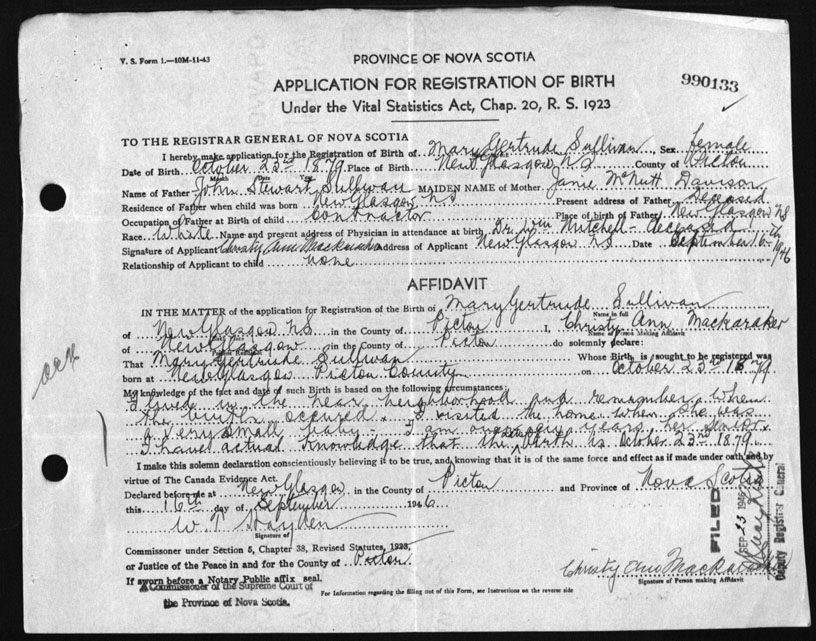 V. S. Form 1.—10M-11-43
PROVINCE OF NOVA SCOTIA
990133
APPLICATION FOR REGISTRATION OF BIRTH
Under the Vital Statistics Act, Chap. 20, R. S. 1923
TO THE REGISTRAR GENERAL OF NOVA SCOTIA
I hereby make application for the Registration of Birth of Mary Gertrude Sullivan, Sex female
Date of Birth October 23rd 1879 Place of Birth New Glasgow N S County of Pictou
Month Date Year
Name of Father John Stewart Sullivan MAIDEN NAME of Mother Janie McNutt Davison
Residence of Father when child was born New Glasgow N S Present address of Father Deceased
Occupation of Father at Birth of child Contractor Place of birth of Father New Glasgow N S
Race White Name and present address of Physician in attendance at birth Dr. Wm Mitchell - deceased
Signature of Applicant Christy Ann Address of Applicant New Glasgow N S Date September 16th 1946
Relationship of Applicant to child none
AFFIDAVIT
IN THE MATTER of the application for Registration of the Birth of Mary Gertrude Sullivan
Name in full
of New Glasgow N S in the County of Pictou I, Christy Ann Mackaraker
Name of Person Making Affidavit
of New Glasgow in the County of Pictou do solemnly declare:
That Mary Gertrude Sullivan Whose Birth is sought to be registered was
born at New Glasgow Pictou County on October 23rd 1879
My knowledge of the fact and date of such Birth is based on the following circumstances:
I lived in the near neighborhood and remember when
the birth occured. I visited the home when she was
a very small baby - I am years her senior.
I have actual knowledge that the birth is October 23rd 1879.
I make this solemn declaration conscientiously believing it to be true, and knowing that it is of the same force and effect as if made under oath and by
virtue of The Canada Evidence Act.
Declared before me at New Glasgow in the County of Pictou and Province of Nova Scotia
this 16th day of September 1946
W. T. Hayden
Signature of
Commissioner under Section 5, Chapter 38, Revised Statutes, 1923,
or Justice of the Peace in and for the County of Pictou
If sworn before a Notary Public affix seal.
A Commissioner of the Supreme Court of
the Province of Nova Scotia.
Christy Ann
Signature of Person making Affidavit
For Information regarding the filling out of this Form, see Instructions on the reverse side
FILED
SEP 23 1946
Deputy Registrar General